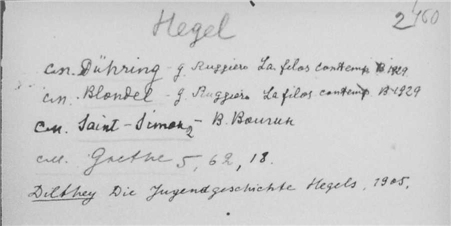 Hegel
2/160
см. Dühring - g. Ruggiero La filos contemp B 1929
см. Blondel - g. Ruggiero La filos contemp B 1929
см. Saint-Simon 2 - В. Волгин
см. Goethe 5, 62, 18.
Dilthey Die Jugendgeschichte Hegels, 1905.